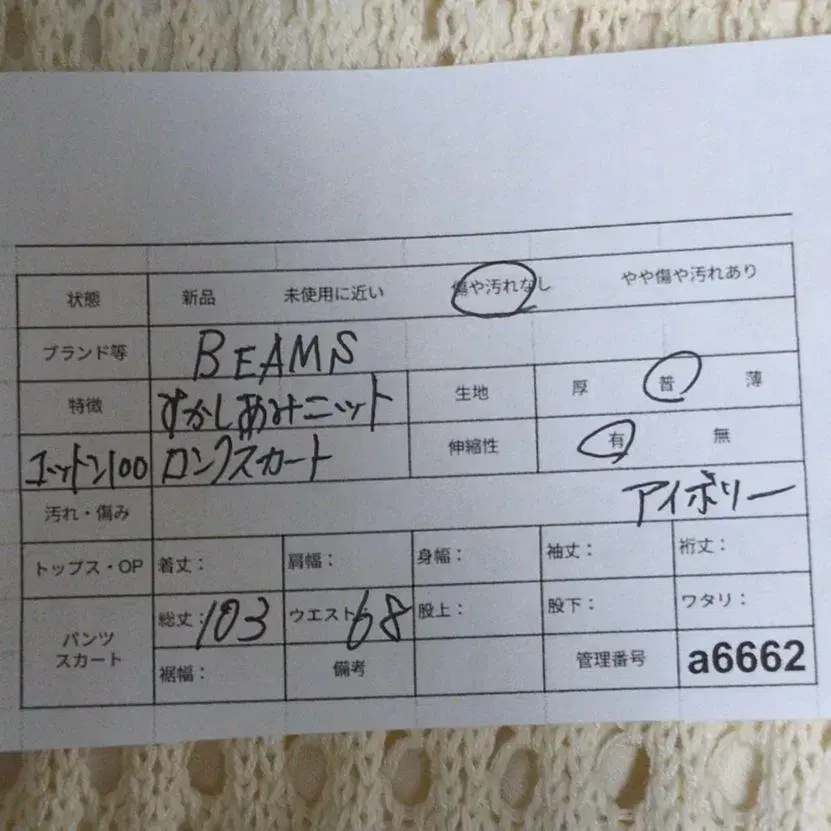 状態 新品 未使用に近い 傷や汚れなし やや傷や汚れあり
ブランド等 BEAMS
特徴 すかしあみニット 生地 厚 普 薄
コットン100 ロングスカート 伸縮性 有 無
汚れ・傷み アイボリー
トップス・OP 着丈: 肩幅: 身幅: 袖丈: 裄丈:
パンツ
スカート
総丈:103 ウエスト:68 股上: 股下: ワタリ:
裾幅: 備考 管理番号 a6662